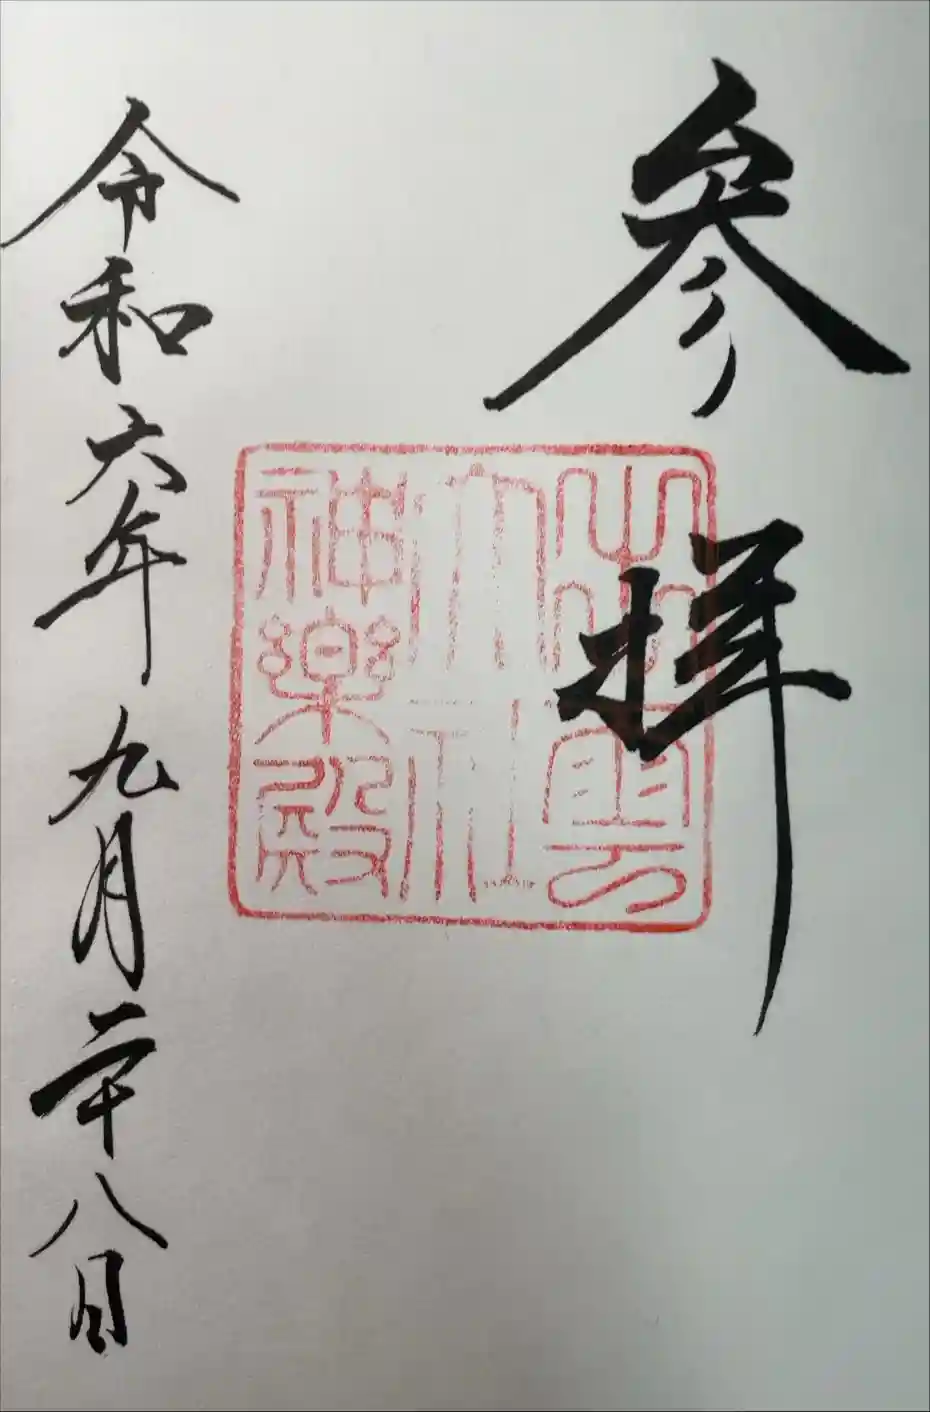 参拝
出雲大社神楽殿
令和六年九月二十八日